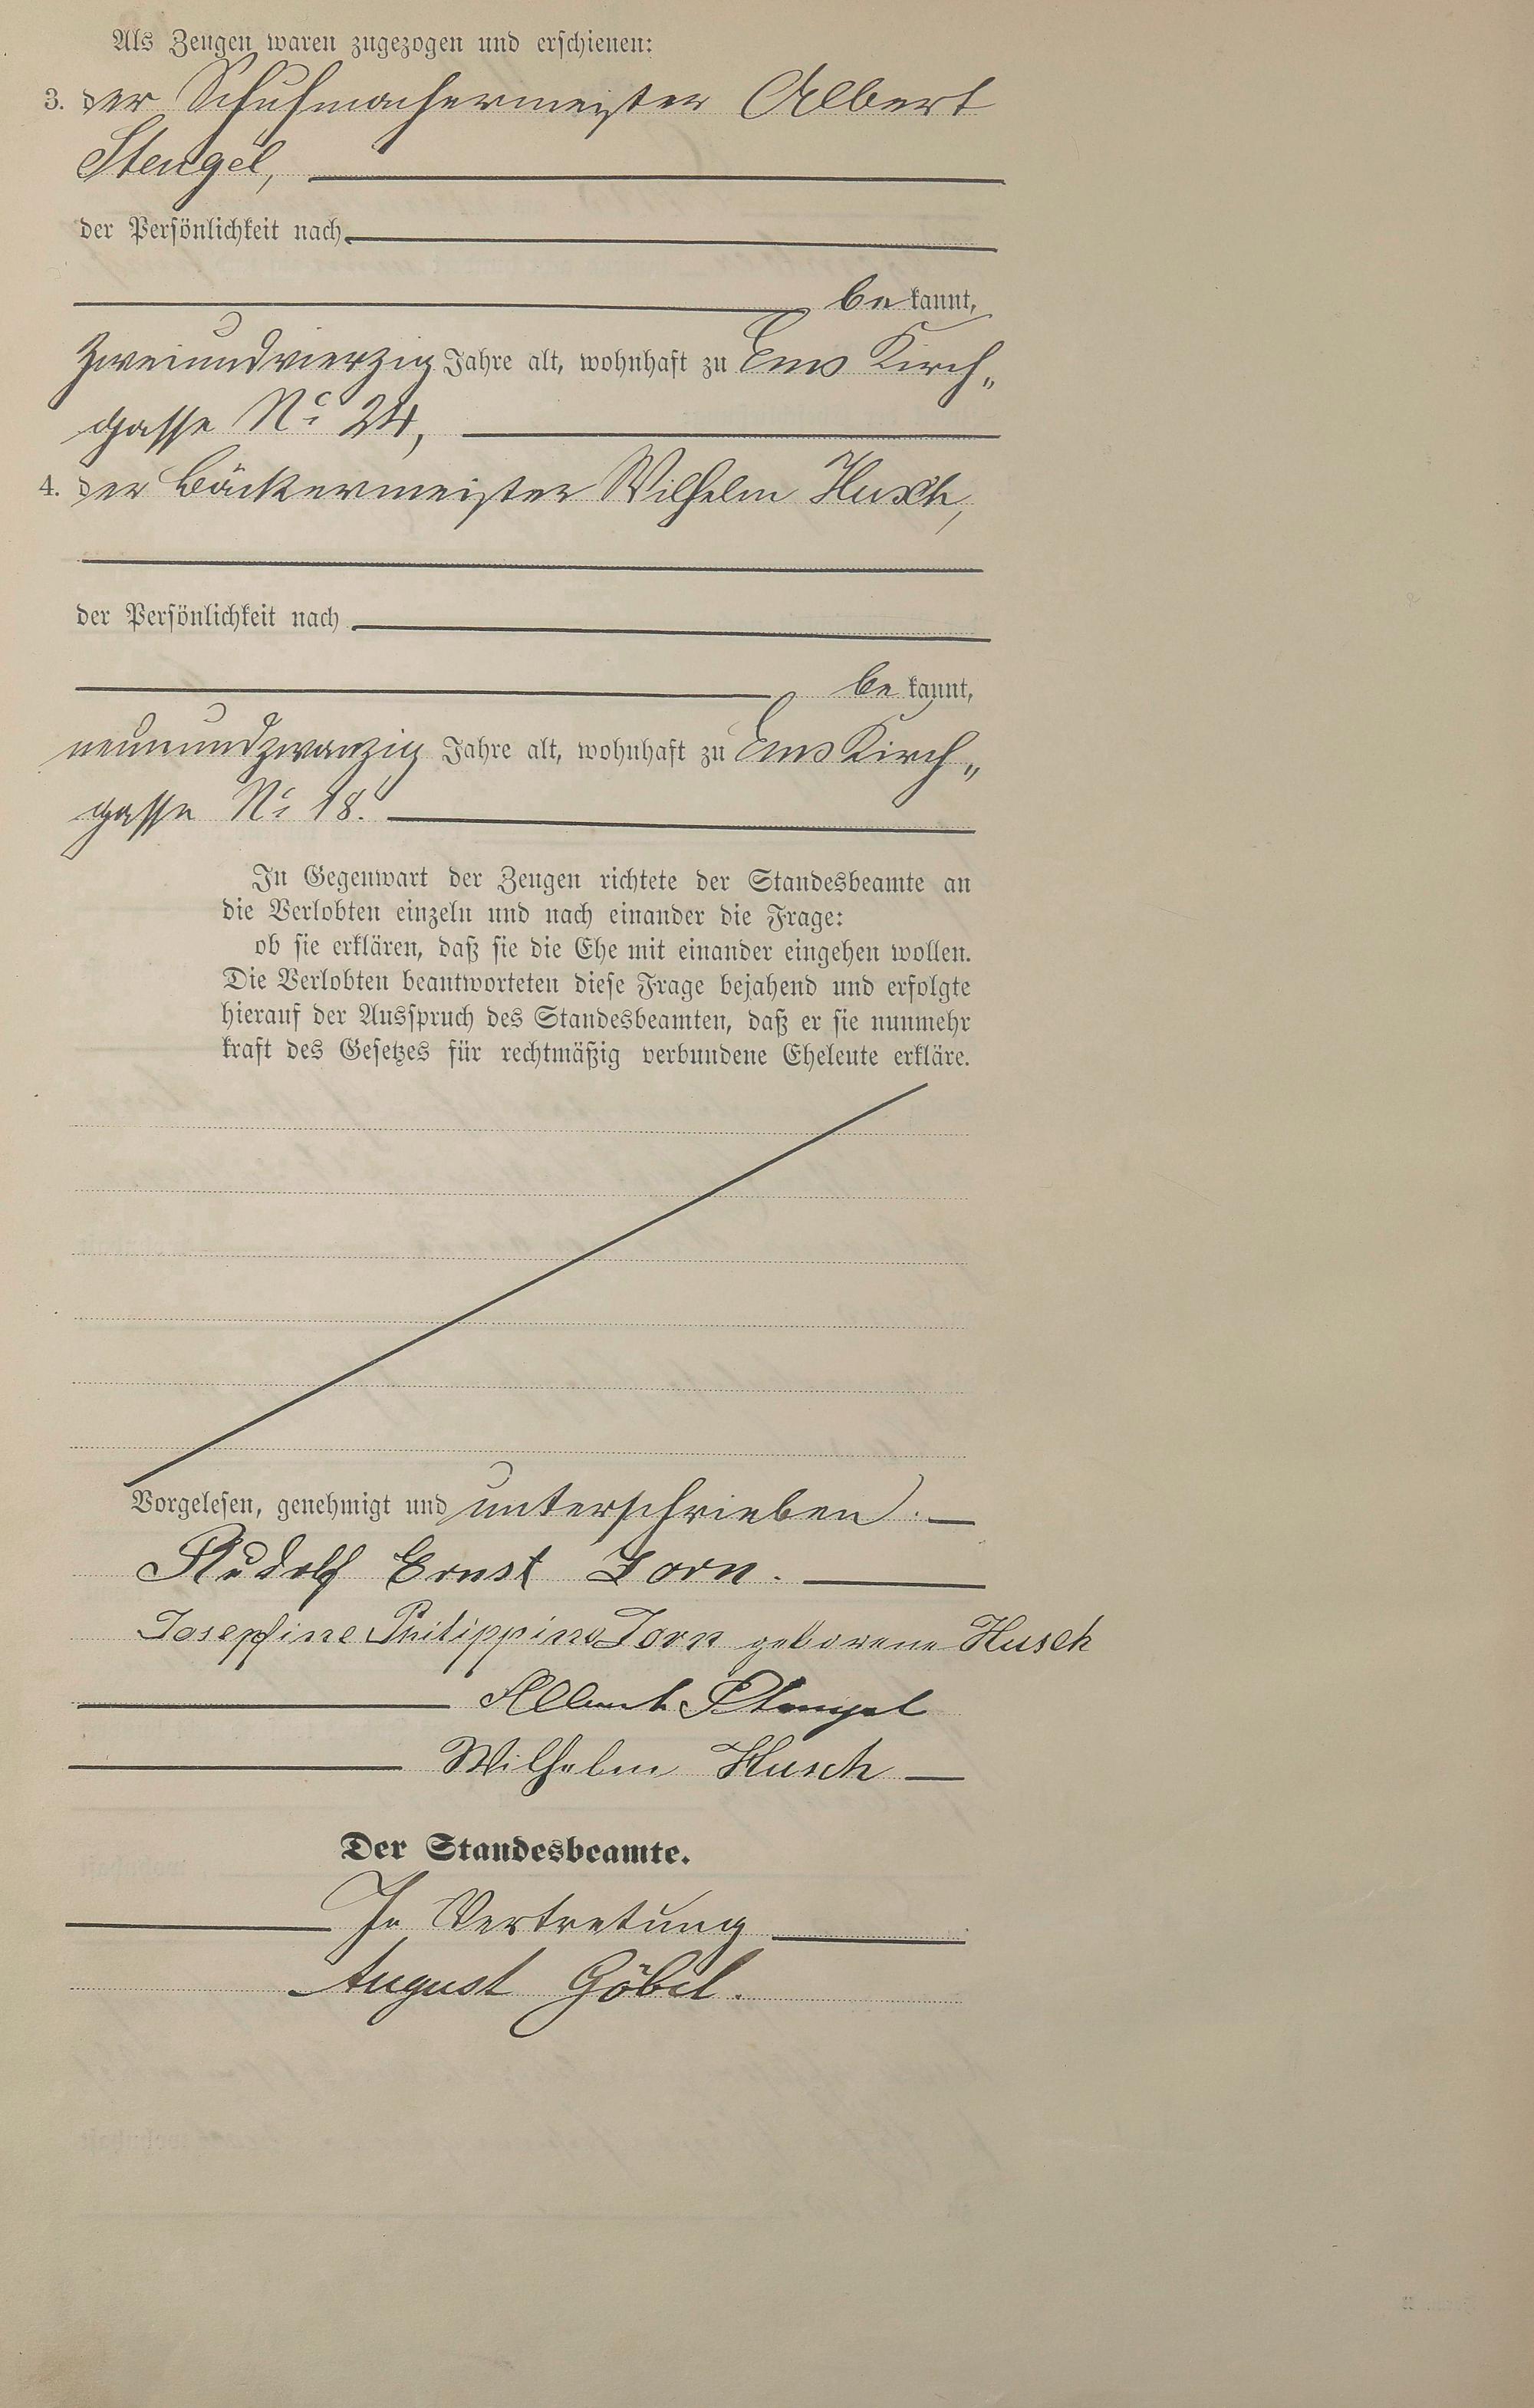 Als Zeugen waren zugezogen und erschienen:
3. der Schuhmachermeister Albert
Stengel,
der Persönlichkeit nach
bekannt,
zweiundvierzig Jahre alt, wohnhaft zu Ems Kirch„
gasse No 24,
4. der Bäckermeister Wilhelm Husch,
der Persönlichkeit nach
bekannt,
neunundzwanzig Jahre alt, wohnhaft zu Ems Kirch„
gasse No 18.
In Gegenwart der Zeugen richtete der Standesbeamte an
die Verlobten einzeln und nach einander die Frage:
ob sie erklären, daß sie die Ehe mit einander eingehen wollen.
Die Verlobten beantworteten diese Frage bejahend und erfolgte
hierauf der Ausspruch des Standesbeamten, daß er sie nunmehr
kraft des Gesetzes für rechtmäßig verbundene Eheleute erkläre.
Vorgelesen, genehmigt und unterschrieben.
Rudolf Ernst Zorn.
Josephine Philippine Zorn geborene Husch
Albert Stengel
Wilhelm Husch
Der Standesbeamte.
In Vertretung
August Göbel.